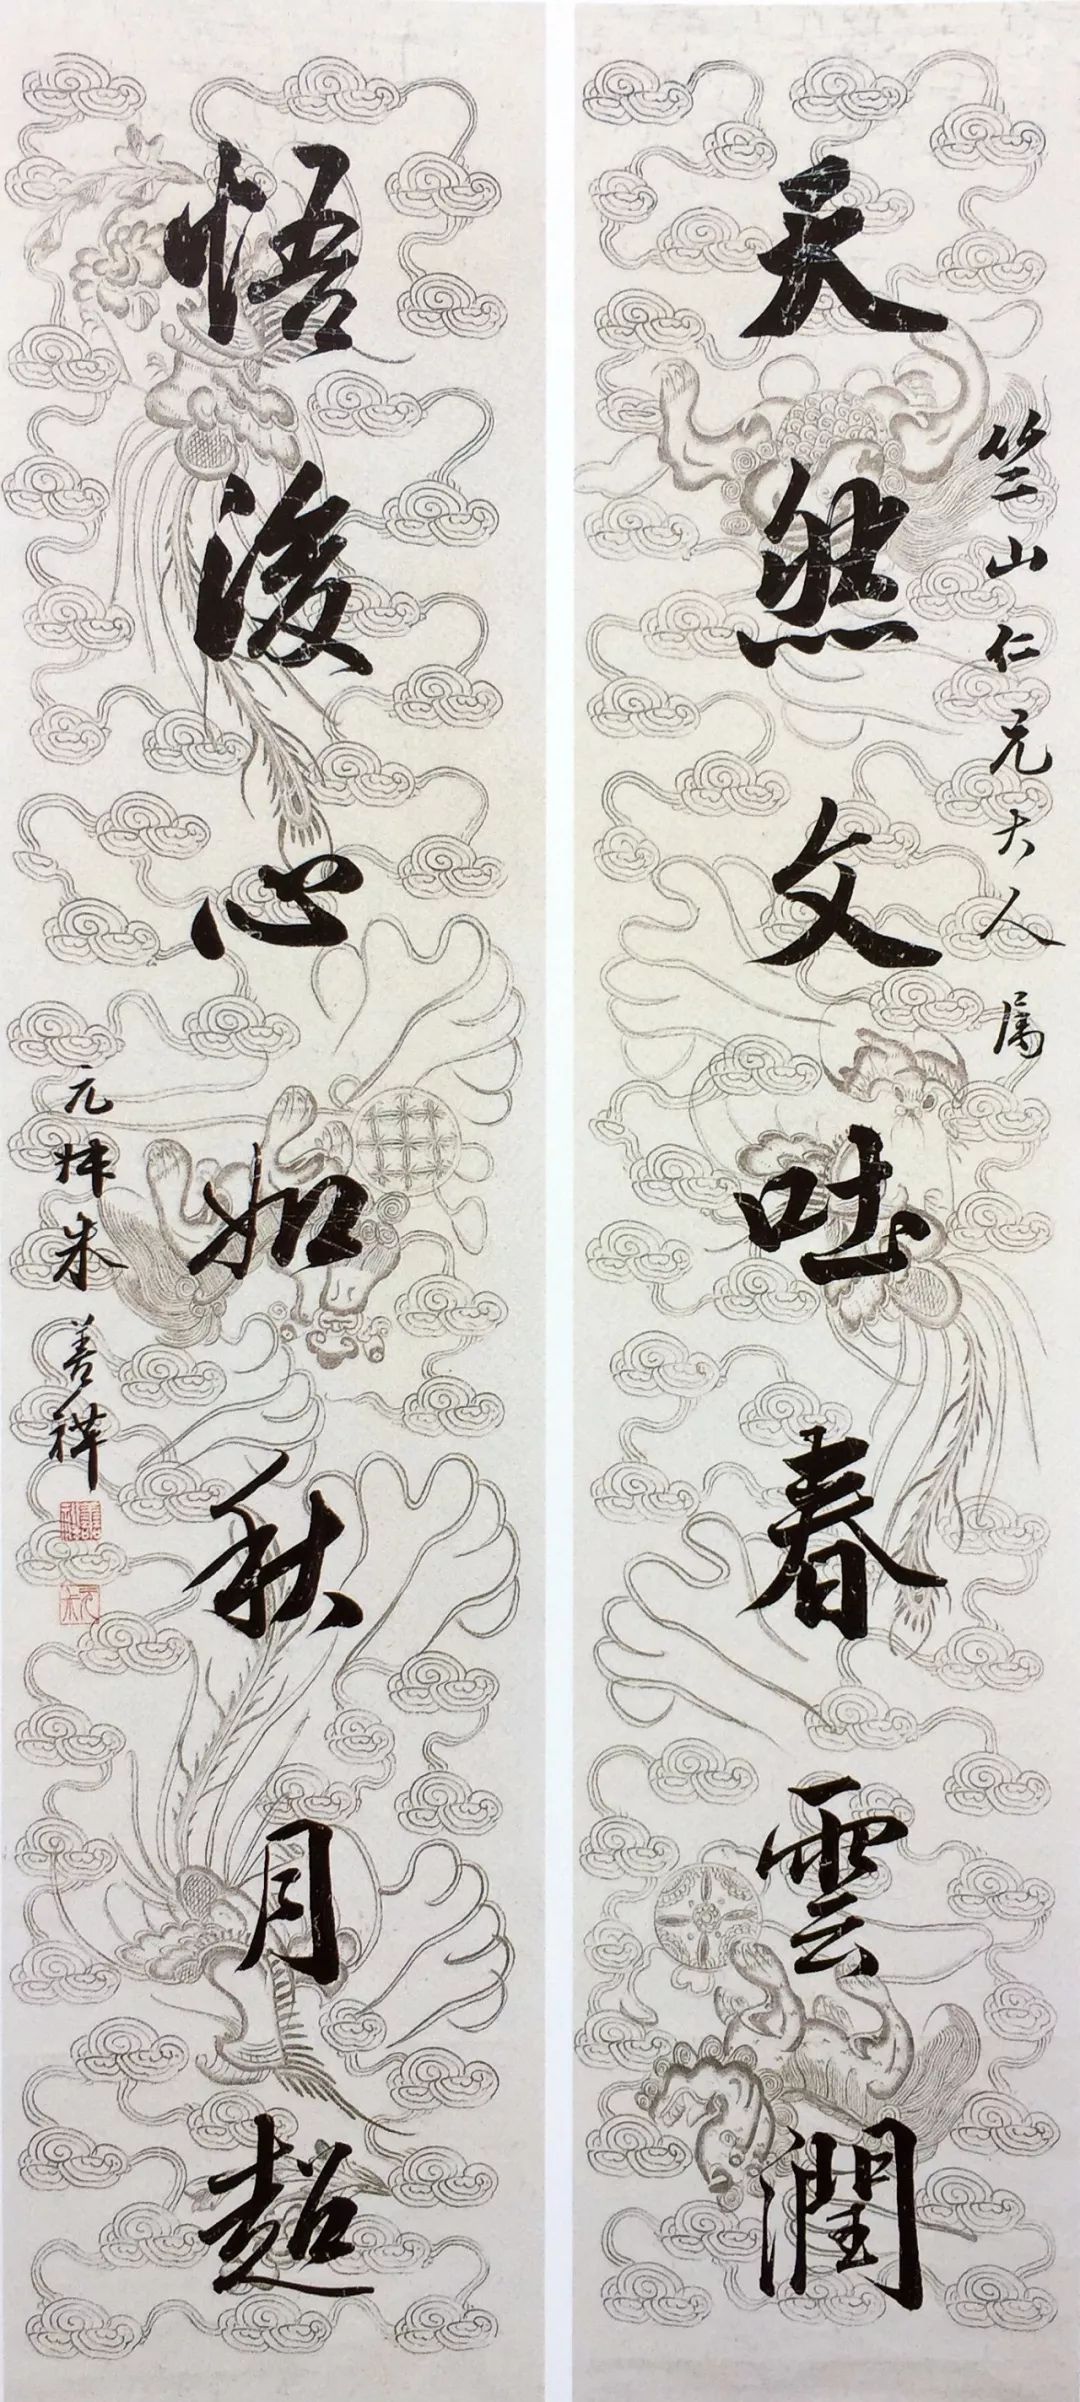 天然文吐春雲潤
竺山仁兄大人属
悟後心如秋月超
元煒朱善祥